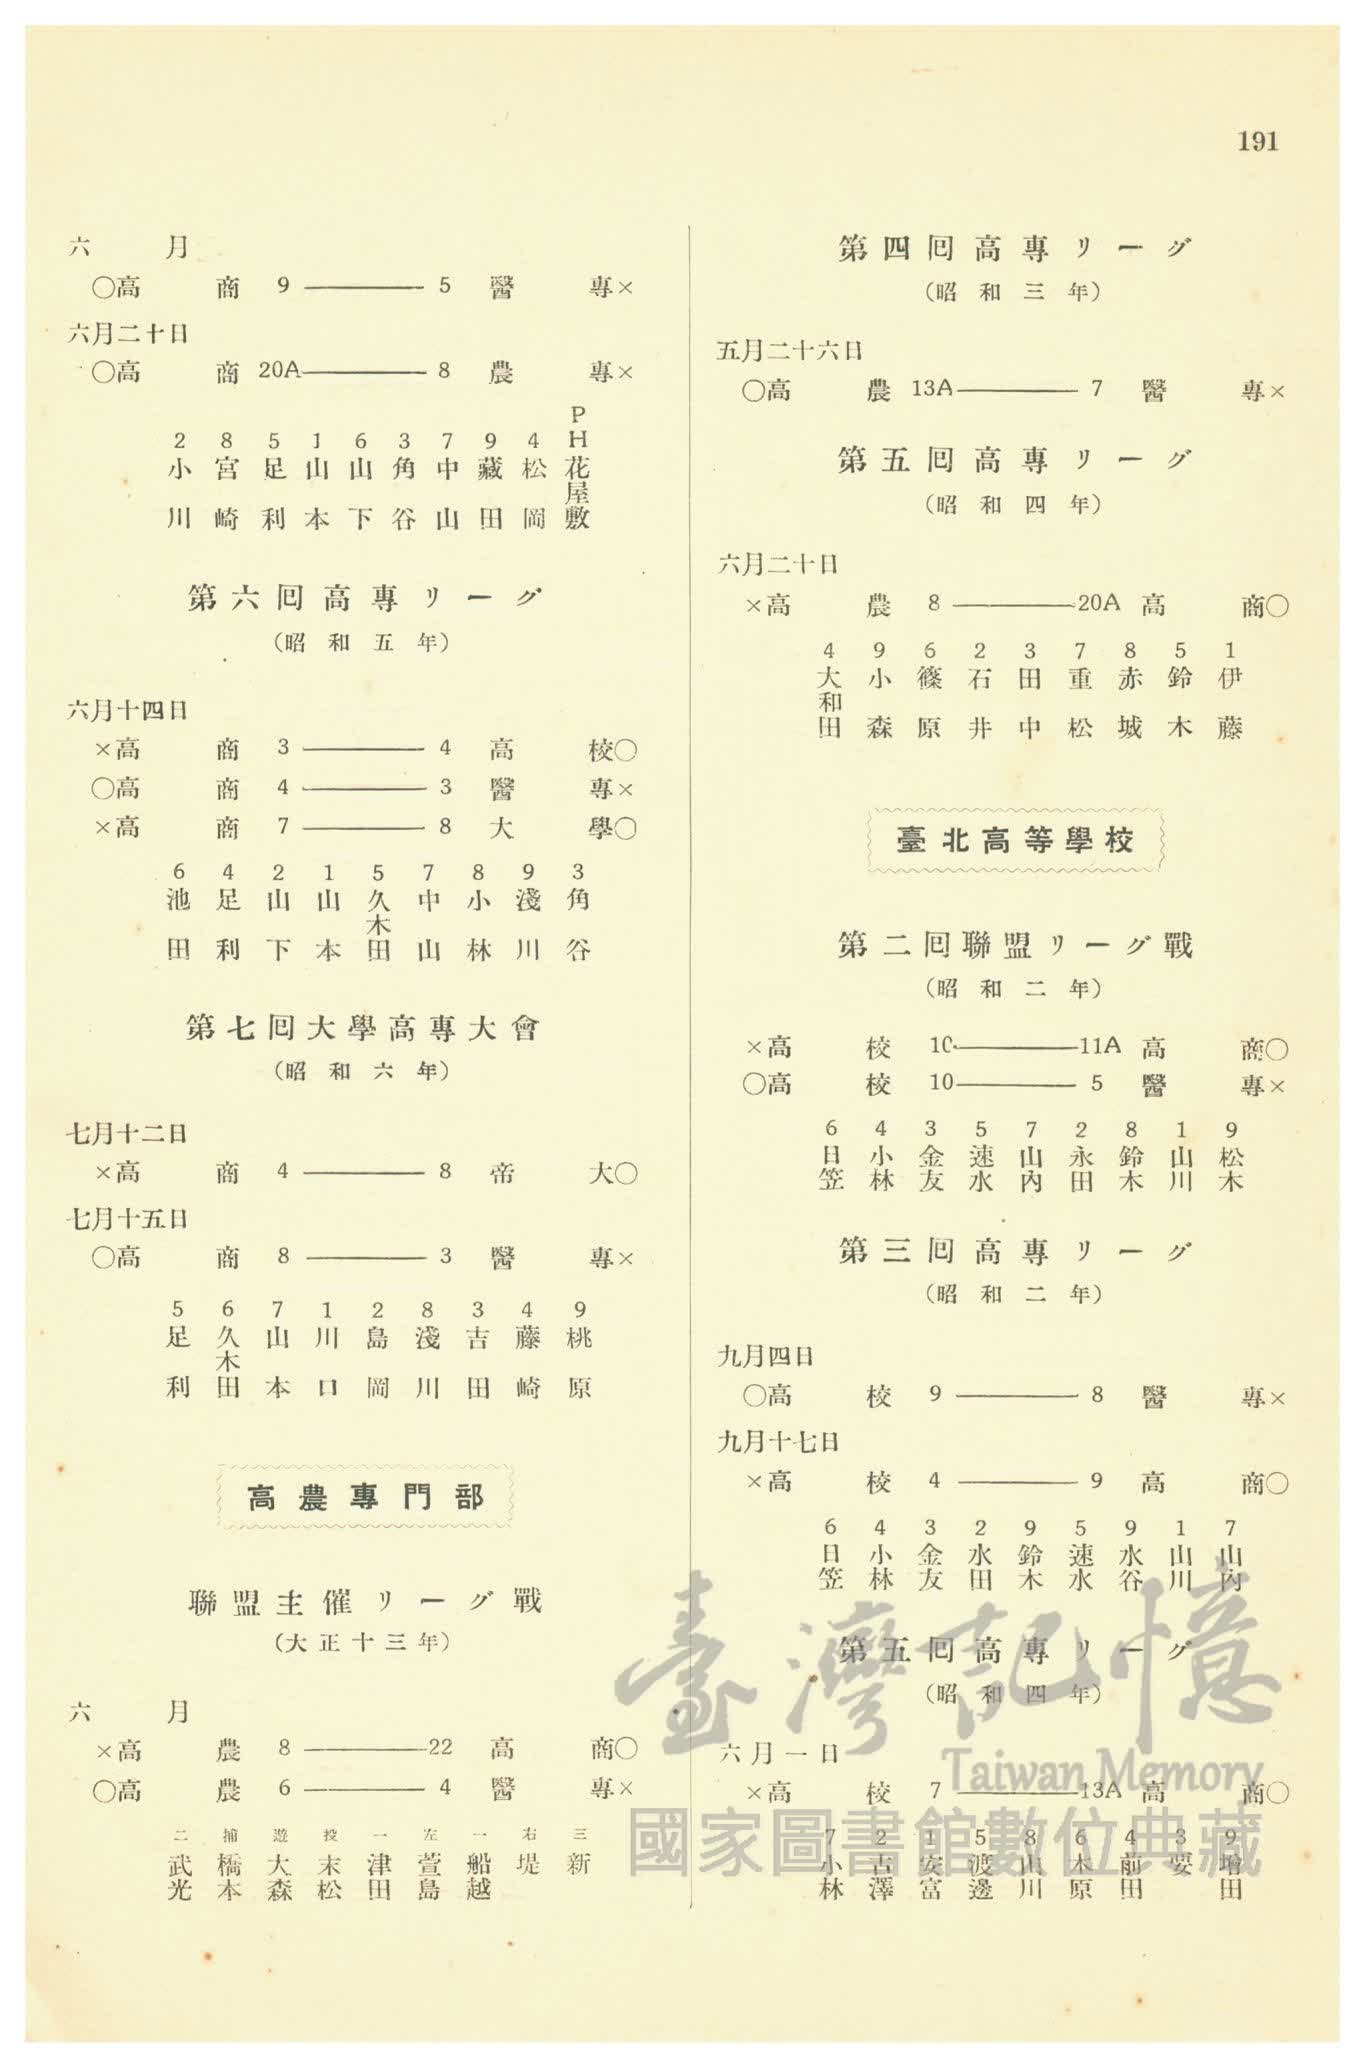 191
六月
○高商 9 ——— 5 醫專×
六月二十日
○高商 20A ——— 8 農專×
2 8 5 1 6 3 7 9 4 PH
小川 宮崎 足利 山本 山下 角谷 中山 藏田 松岡 花屋敷
第六囘高專リーグ
(昭和五年)
六月十四日
×高商 3 ——— 4 高校○
○高商 4 ——— 3 醫專×
×高商 7 ——— 8 大學○
6 4 2 1 5 7 8 9 3
池田 足利 山下 山本 久木田 中山 小林 淺川 角谷
第七囘大學高專大會
(昭和六年)
七月十二日
×高商 4 ——— 8 帝大○
七月十五日
○高商 8 ——— 3 醫專×
5 6 7 1 2 8 3 4 9
足利 久木田 山本 川口 島岡 淺川 吉田 藤崎 桃原
高農專門部
聯盟主催リーグ戰
(大正十三年)
六月
×高農 8 ——— 22 高商○
○高農 6 ——— 4 醫專×
二 捕 遊 投 一 左 一 右 三
武光 橋本 大森 末松 津田 萱島 船越 堤 新
第四囘高專リーグ
(昭和三年)
五月二十六日
○高農 13A ——— 7 醫專×
第五囘高專リーグ
(昭和四年)
六月二十日
×高農 8 ——— 20A 高商○
4 9 6 2 3 7 8 5 1
大和田 小森 篠原 石井 田中 重松 赤城 鈴木 伊藤
臺北高等學校
第二囘聯盟リーグ戰
(昭和二年)
×高校 10 ——— 11A 高商○
○高校 10 ——— 5 醫專×
6 4 3 5 7 2 8 1 9
日笠 小林 金友 速水 山內 永田 鈴木 山川 松木
第三囘高專リーグ
(昭和二年)
九月四日
○高校 9 ——— 8 醫專×
九月十七日
×高校 4 ——— 9 高商○
6 4 3 2 9 5 9 1 7
日笠 小林 金友 水田 鈴木 速水 水谷 山川 山內
第五囘高專リーグ
(昭和四年)
六月一日
×高校 7 ——— 13A 高商○
7 2 1 5 8 6 4 3 9
小林 古澤 安富 渡邊 山川 木原 前田 要 增田
臺灣記憶
Taiwan Memory
國家圖書館數位典藏